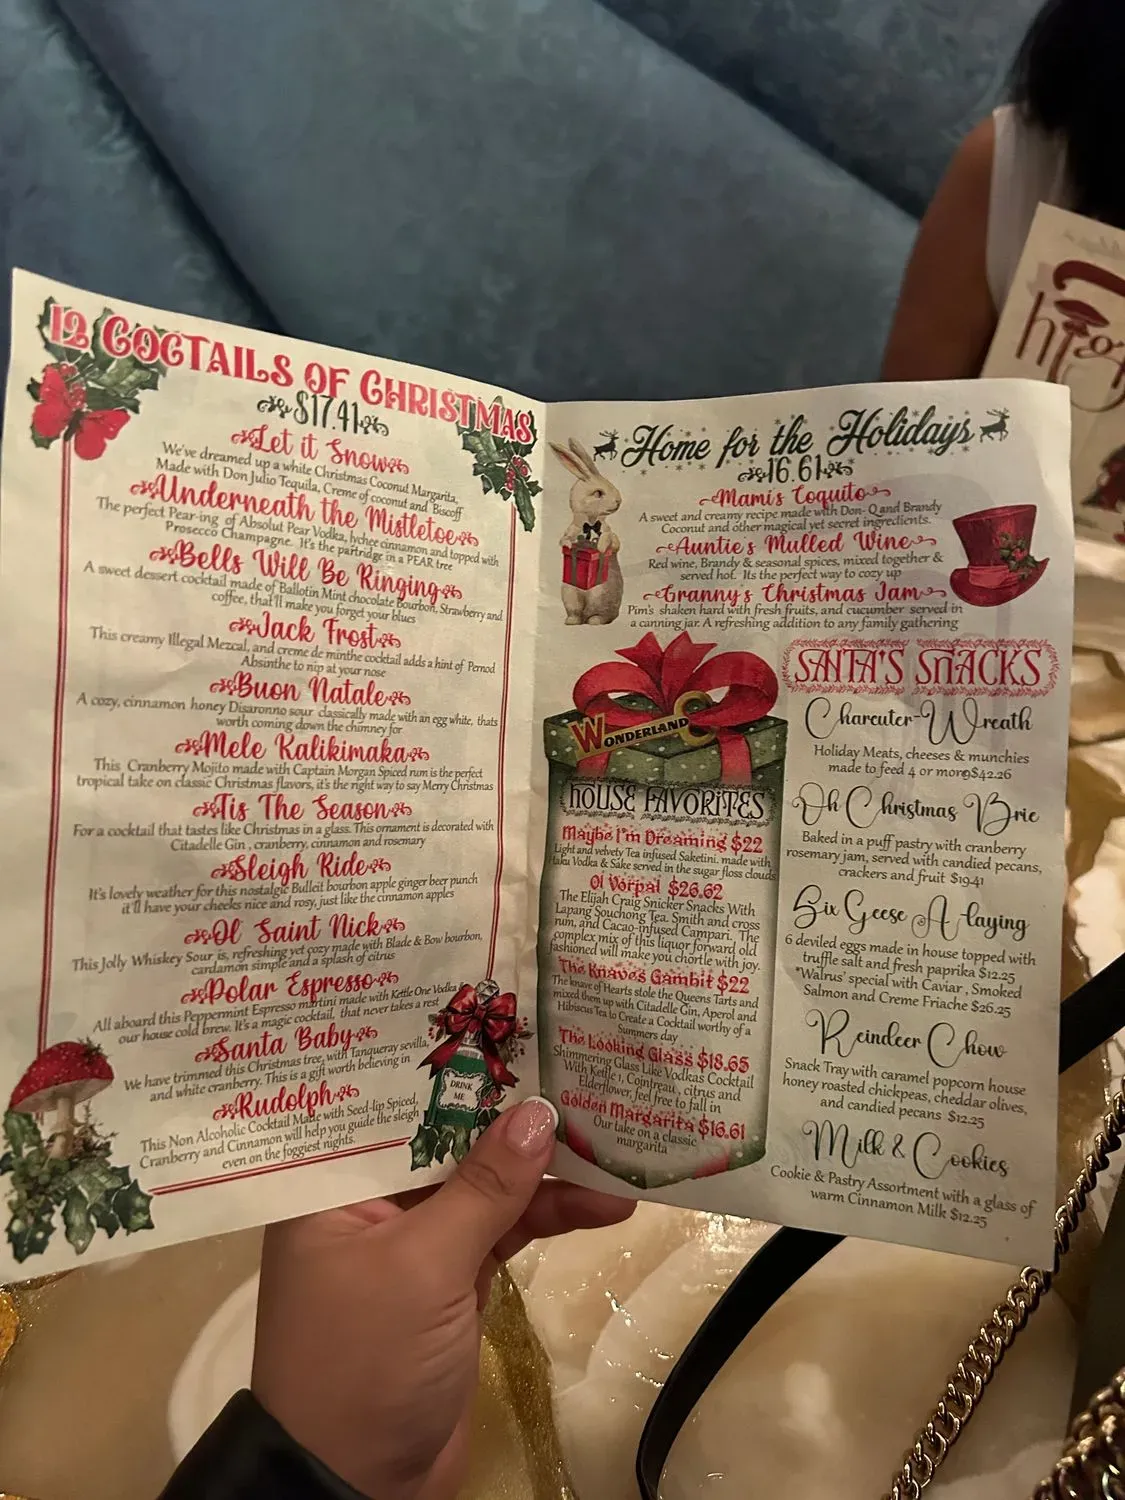 12 COCTAILS OF CHRISTMAS
$17.41
Let it Snow
We've dreamed up a white Christmas Coconut Margarita,
Made with Don Julio Tequila, Creme of coconut and Biscoff
Underneath the Mistletoe
The perfect Pear-ing of Absolut Pear Vodka, lychee cinnamon and topped with
Prosecco Champagne. It's the partridge in a PEAR tree
Bells Will Be Ringing
A sweet dessert cocktail made of Ballotin Mint chocolate Bourbon, Strawberry and
coffee, that'll make you forget your blues
Jack Frost
This creamy Illegal Mezcal, and creme de minthe cocktail adds a hint of Pernod
Absinthe to nip at your nose
Buon Natale
A cozy, cinnamon honey Disaronno sour classically made with an egg white, thats
worth coming down the chimney for
Mele Kalikimaka
This Cranberry Mojito made with Captain Morgan Spiced rum is the perfect
tropical take on classic Christmas flavors, it's the right way to say Merry Christmas
Tis The Season
For a cocktail that tastes like Christmas in a glass. This ornament is decorated with
Citadelle Gin , cranberry, cinnamon and rosemary
Sleigh Ride
It's lovely weather for this nostalgic Bulleit bourbon apple ginger beer punch
it'll have your cheeks nice and rosy, just like the cinnamon apples
Ol' Saint Nick
This Jolly Whiskey Sour is, refreshing yet cozy made with Blade & Bow bourbon,
cardamon simple and a splash of citrus
Polar Espresso
All aboard this Peppermint Espresso martini made with Kettle One Vodka &
our house cold brew. It's a magic cocktail, that never takes a rest
Santa Baby
We have trimmed this Christmas tree, with Tanqueray sevilla,
and white cranberry. This is a gift worth believing in
Rudolph
This Non Alcoholic Cocktail Made with Seed-lip Spiced,
Cranberry and Cinnamon will help you guide the sleigh
even on the foggiest nights.
DRINK
ME
Home for the Holidays
16.61
Mami's Coquito
A sweet and creamy recipe made with Don- Q and Brandy
Coconut and other magical yet secret ingredients.
Auntie's Mulled Wine
Red wine, Brandy & seasonal spices, mixed together &
served hot. Its the perfect way to cozy up
Granny's Christmas Jam
Pim's shaken hard with fresh fruits, and cucumber served in
a canning jar. A refreshing addition to any family gathering
WONDERLAND
HOUSE FAVORITES
Maybe I'm Dreaming $22
Light and velvety Tea infused Saketini, made with
Haku Vodka & Sake served in the sugar floss clouds
Ol Vorpal $26.62
The Elijah Craig Snicker Snacks With
Lapang Souchong Tea. Smith and cross
rum, and Cacao-infused Campari. The
complex mix of this liquor forward old
fashioned will make you chortle with joy.
The Knaves Gambit $22
The knave of Hearts stole the Queens Tarts and
mixed them up with Citadelle Gin, Aperol and
Hibiscus Tea to Create a Cocktail worthy of a
Summers day
The Looking Glass $18.65
Shimmering Glass Like Vodkas Cocktail
With Kettle 1, Cointreau, citrus and
Elderflower, feel free to fall in
Golden Margarita $16.61
Our take on a classic
margarita
SANTA'S SNACKS
Charcuter-Wreath
Holiday Meats, cheeses & munchies
made to feed 4 or more$42.26
Oh Christmas Brie
Baked in a puff pastry with cranberry
rosemary jam, served with candied pecans,
crackers and fruit $19.41
Six Geese A-laying
6 deviled eggs made in house topped with
truffle salt and fresh paprika $12.25
"Walrus' special with Caviar , Smoked
Salmon and Creme Friache $26.25
Reindeer Chow
Snack Tray with caramel popcorn house
honey roasted chickpeas, cheddar olives,
and candied pecans $12.25
Milk & Cookies
Cookie & Pastry Assortment with a glass of
warm Cinnamon Milk $12.25